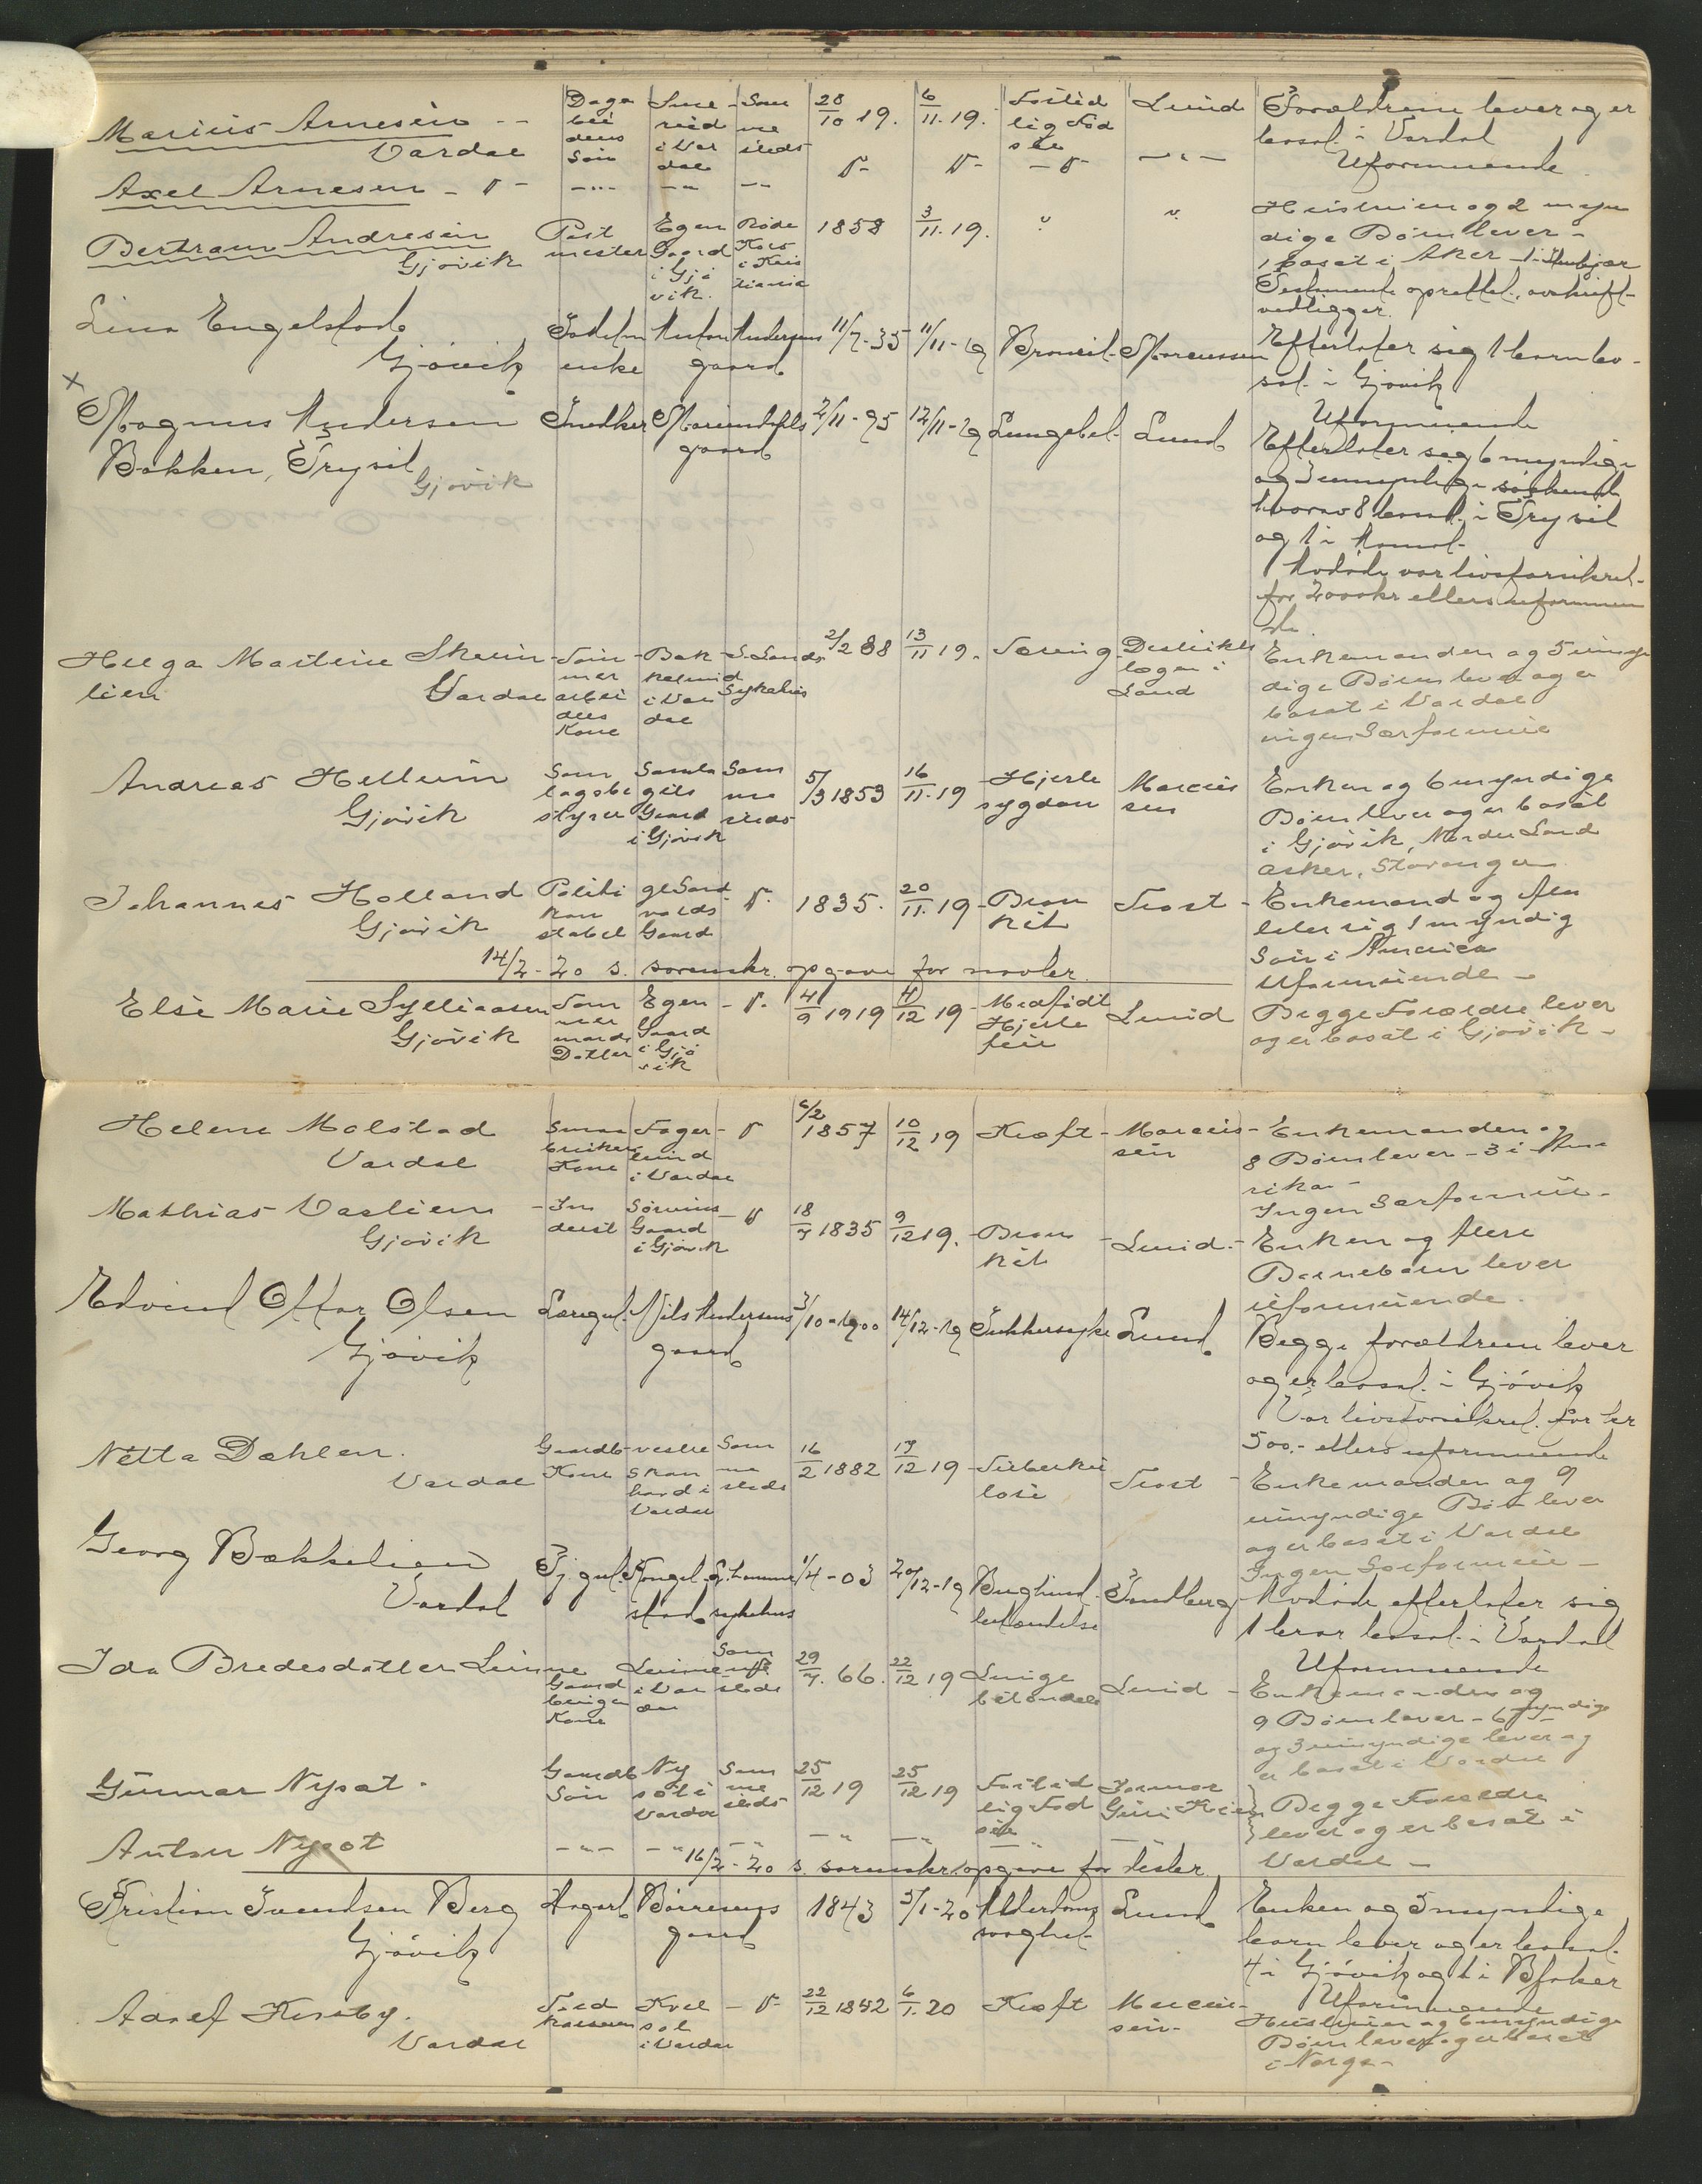 Marius Arnesen -- Daga bei ders Søn Sme rud i Var dal Sam me steds 28/10 19. 6/11. 19. Fortid lig Fød sel Lund Forældrene lever og er
Vardal bosat i Vardal
Uformuende
Axel Arnesen - D - -"- -"- -"- D- D- -D- -"-
Bertram Andresen Post mester Egen Gaard i Gjø vik. Røde Kors i Kris tiania 1858 3/11. 19. " " Hustruen og 2 myn
Gjøvik dige Børn lever -
1 bosat i Aker -
Testamente oprettet, avskrift
vedligger.
Lina Engelstad Sadelm enke Anton Andersens gaard 11/7-35 11/11-19 Bronchit Marcussen Efterlater sig 1 barn bo-
Gjøvik sat i Gjøvik
Uformuende
x
Magnus Andersen Snedker gaard 2/11-95 12/11-19 Lungebet. Lund Efterlater sig 6 myndige
Bakken, Trysil og 3 umyndige søskend
Gjøvik hvorav 8 bosat i Trysil
og 1 i
Avdøde var livsforsikret
for 2000kr ellers uformuen
de.
Helga Martine Skun Tøm mer arbei ders Kone Bak kelund i Var dal S. Lands Sykehus 2/2 88 13/11 19. Tæring Distrikts lægen i Land Enkemanden og 5 umyn
lien Vardal dige Børn lever og er
bosat i Vardal
ingen Særformue
Andreas Hellum Sam lagsbe styrer Samla gets Gaard i Gjøvik Sam me steds 5/3 1853 16/11. 19 Hjerte sygdom Marcus sen Enken og 6 myndige
Gjøvik Børn lever og er bosat
i Gjøvik, Nordre Land
Asker, Stavanger
Johannes Holland Politi kon stabel Gaard D. 1835. 20/11. 19 Bron kit Trost - Enkemand og efter
Gjøvik later sig 1 myndig
Søn i America
Uformuende -
14/2-20 s. sorenskr. opgave for novbr.
Else Marie Sylliaasen Tøm mer mands Datter Egen Gaard i Gjø vik - D. 4/9 1919 4/12 19 Medfødt Hjerte feil Lund Begge Forældre lever
Gjøvik og er bosat i Gjøvik -
Helene Molstad Smaa bruker Kone Fager lund i Vardal - D 6/2 1857 10/12 19 Kræft - Marcus sen - Enkemanden og
Vardal 8 Børn lever - 3 i Ame
rika -
Ingen Særformue -
Mathias Vaslien - In derst Gaard i Gjøvik - D 18/7 1835 9/12 19. Bron kit - Lund. - Enken og flere
Gjøvik Barnebarn lever
uformuende.
Edvind Ottar Olsen Læregut Nils Andersens gaard 3/10-1900 14/12-19 Sukkersyke Lund Begge forældrene lever
Gjøvik og er bosat i Gjøvik
Var livsforsikret for kr
500.- ellers uformuende
Netta Dahlen. Gaardb Kone vestre i Vardal Sam me steds 16/2 1882 17/12 19 - Tuberku lose Trost - Enkemanden og 9
Vardal umyndige Børn lever
og er bosat i Vardal
Ingen Særformue -
Georg Bækkelien Tj. gut. stad sykehus 1/4-03 20/12-19 Sandberg Avdøde efterlater sig
Vardal 1 bror bosat i Vardal
Uformuende
Ida Bredesdatter Linne Gaard bruger Kone Linne i Var dal Sam me steds 29/7. 66. 22/12 19 Lunge betendelse Lund - Enkemanden og
9 Børn lever - 6 myndige
og 3 umyndige lever og
er bosat i Vardal
Gunnar Nysæt. Gaardb Søn Ny sæt i Vardal Sam me steds 25/12 19 25/12 19 Fortid lig Fød sel Jormor Begge Forældre
lever og er bosat i
Vardal -
Anton Nysæt -"- -"- -"- -"- -"- -"-
16/2-20 s. sorenskr. opgave for desbr.
Kristian Svendsen Berg Børresens gaard 1843 3/1-20 Alderdoms svaghet Lund Enken og 5 myndige
Gjøvik barn lever og er bosat
4 i Gjøvik og 1 i
Uformuende
Adolf Kirseby. i Vardal - D - 22/12 1842 6/1. 20 Kræft Marcus- sen - Hustruen og 6 myndige
Vardal Børn lever og er bosat
i Norge -